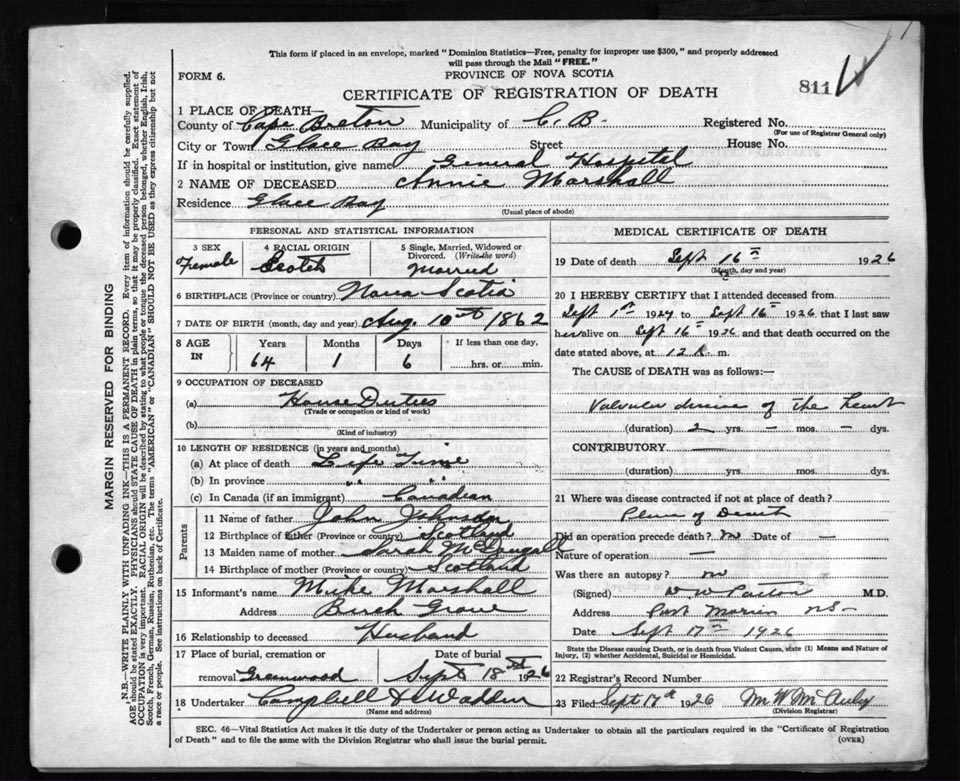 This form if placed in an envelope, marked "Dominion Statistics—Free, penalty for improper use $300," and properly addressed
will pass through the Mail "FREE."
FORM 6.
PROVINCE OF NOVA SCOTIA
811
CERTIFICATE OF REGISTRATION OF DEATH
1 PLACE OF DEATH—
County of Cape Breton Municipality of C. B. Registered No.
(For use of Registrar General only)
City or Town Glace Bay Street House No.
If in hospital or institution, give name General Hospital
2 NAME OF DECEASED Annie Marshall
Residence Glace Bay
(Usual place of abode)
PERSONAL AND STATISTICAL INFORMATION
3 SEX
Female
4 RACIAL ORIGIN
Scotch
5 Single, Married, Widowed or
Divorced. (Write the word)
Married
6 BIRTHPLACE (Province or country) Nova Scotia
7 DATE OF BIRTH (month, day and year) Aug. 10th 1862
8 AGE IN Years Months Days If less than one day,
64 1 6 hrs. or min.
9 OCCUPATION OF DECEASED
(a) House Duties
(Trade or occupation or kind of work)
(b)
(Kind of industry)
10 LENGTH OF RESIDENCE (in years and months)
(a) At place of death Life Time
(b) In province " "
(c) In Canada (if an immigrant) Canadian
Parents
11 Name of father John Johnston
12 Birthplace of father (Province or country) Scotland
13 Maiden name of mother Sarah McDougall
14 Birthplace of mother (Province or country) Scotland
15 Informant's name Mike Marshall
Address Birch Grove
16 Relationship to deceased Husband
17 Place of burial, cremation or Date of burial
removal Greenwood Sept 18th 1926
18 Undertaker Campbell & Wadden
(Name and address)
MEDICAL CERTIFICATE OF DEATH
19 Date of death Sept 16th 1926
(Month, day and year)
20 I HEREBY CERTIFY that I attended deceased from
Sept 1st 1924 to Sept 16th 1926 that I last saw
her alive on Sept 16th 1926 and that death occurred on the
date stated above, at 12 m.
The CAUSE of DEATH was as follows:—
Valvular disease of the heart
(duration) 2 yrs. — mos. — dys.
CONTRIBUTORY
(duration) yrs. mos. dys.
21 Where was disease contracted if not at place of death?
Place of Death
Did an operation precede death? no Date of —
Nature of operation —
Was there an autopsy? no
(Signed) M.D.
Address Port Morien NS
Date Sept 17th 1926
State the Disease causing Death, or in death from Violent Causes, state (1) Means and Nature of
Injury, (2) whether Accidental, Suicidal or Homicidal.
22 Registrar's Record Number
23 Filed Sept 17th 1926
(Division Registrar)
SEC. 46—Vital Statistics Act makes it the duty of the Undertaker or person acting as Undertaker to obtain all the particulars required in the "Certificate of Registration
of Death" and to file the same with the Division Registrar who shall issue the burial permit.
(OVER)
MARGIN RESERVED FOR BINDING
N.B.—WRITE PLAINLY WITH UNFADING INK—THIS IS A PERMANENT RECORD. Every item of information should be carefully supplied.
AGE should be stated EXACTLY. PHYSICIANS should STATE CAUSE OF DEATH in plain terms, so that it may be properly classified. Exact statement of
OCCUPATION is very important. RACIAL ORIGIN will be described by stating to what people or tongue the deceased person belonged, whether English, Irish,
Scotch, French, German, Russian, Ruthenian, etc. The terms "AMERICAN" or "CANADIAN" SHOULD NOT BE USED as they express citizenship but not
a race or people. See instructions on back of Certificate.